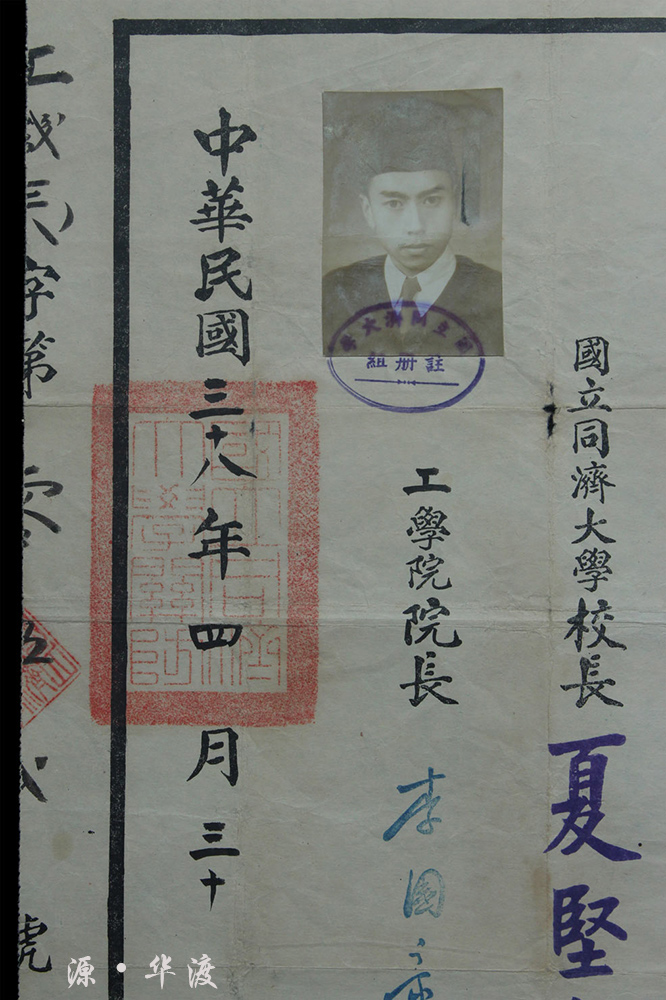 國立同濟大學校長 夏堅
工學院院長 李國
立同濟大學
註冊組
中華民國三十八年四月三十
字第
號
源·华渡